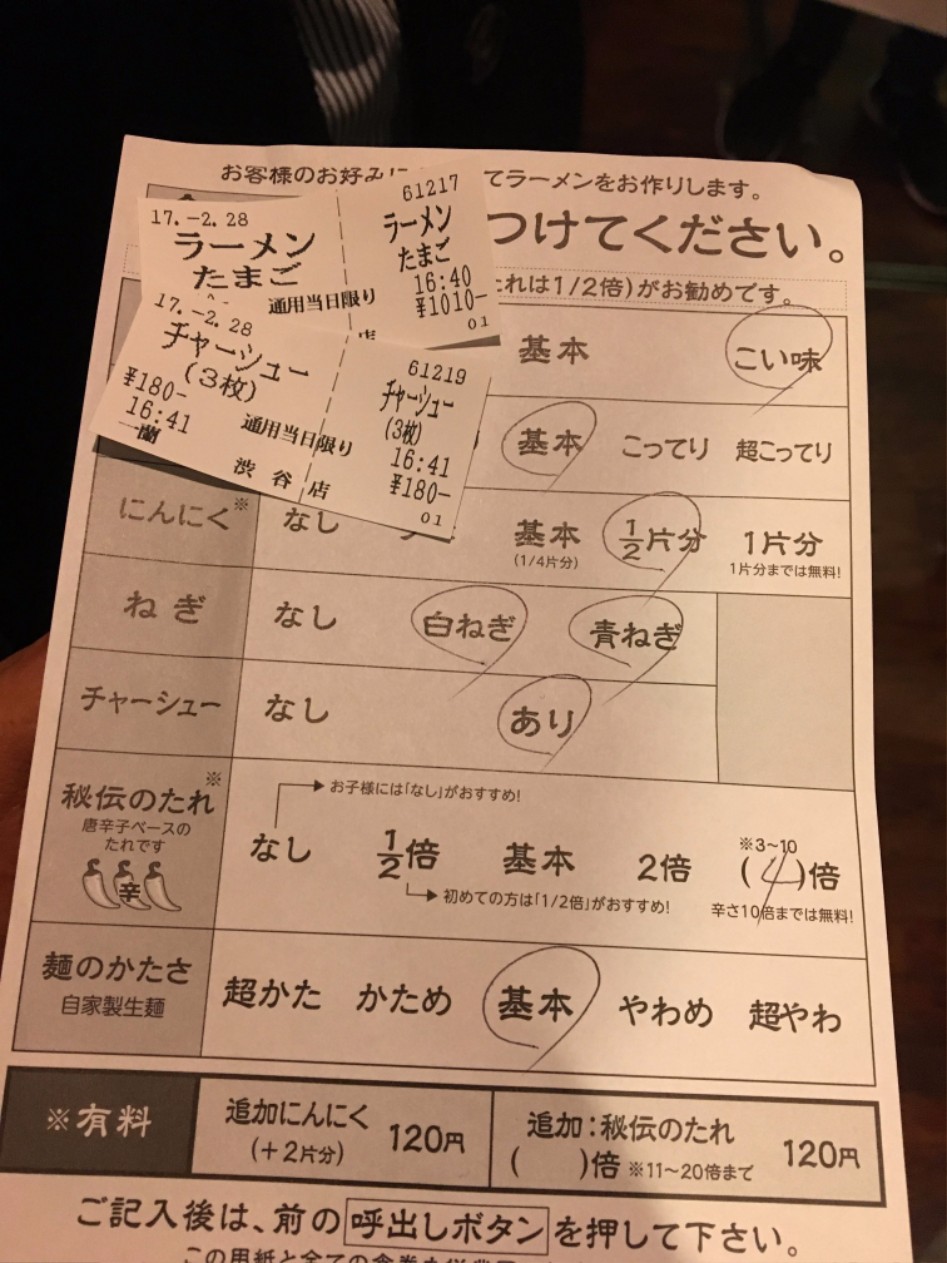 お客様のお好みに てラーメンをお作りします。
つけてください。
れは1/2倍)がお勧めです。
17.-2.28
ラーメン
たまご
通用当日限り
店
61217
ラーメン
たまご
16:40
¥1010-
01
17.-2.28
チャーシュー
(3枚)
¥180-
16:41
通用当日限り
一蘭
渋谷店
61219
チャーシュー
(3枚)
16:41
¥180-
01
基本 こい味
基本 こってり 超こってり
にんにく※ なし 基本 1/2片分 1片分
(1/4片分) 1片分までは無料!
ねぎ なし 白ねぎ 青ねぎ
チャーシュー なし あり
秘伝のたれ※
唐辛子ベースの
たれです
辛
お子様には「なし」がおすすめ!
なし 1/2倍 基本 2倍 (4)倍
※3~10
初めての方は「1/2倍」がおすすめ!
辛さ10倍までは無料!
麺のかたさ
自家製生麺
超かた かため 基本 やわめ 超やわ
※有料
追加にんにく
(+2片分) 120円
追加:秘伝のたれ
( )倍 ※11~20倍まで 120円
ご記入後は、前の呼出しボタンを押して下さい。
この用紙と全ての食券を